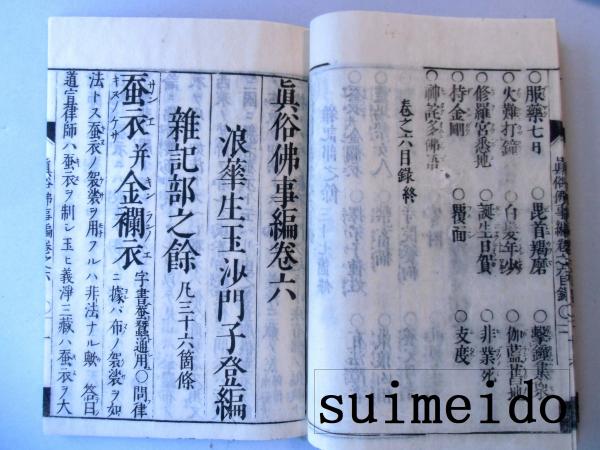 ○服藥七日　○毘首羯磨　○擊鐘集衆
○火難打鐘　○白髮年
○修羅宮悉地　○誕生日賀　○非業死
○持金剛　○覆面　○支度
○神詫多佛語
卷之六目錄終
眞俗佛事編卷六
浪華生玉沙門子登編
雜記部之餘 凡三十六箇條
蚕衣并金襴衣 字書蚕蠶通用○問律ニ據バ布ノ袈裟ヲ如
サンエ キンランノエ
キヌノケサ
法トス蚕衣ノ袈裟ヲ用フルハ非法ナル歟 答曰
道宣律師ハ蚕衣ヲ制シ玉ヒ義淨三藏ハ蚕衣ヲ大
眞俗佛事編卷之六
suimeido